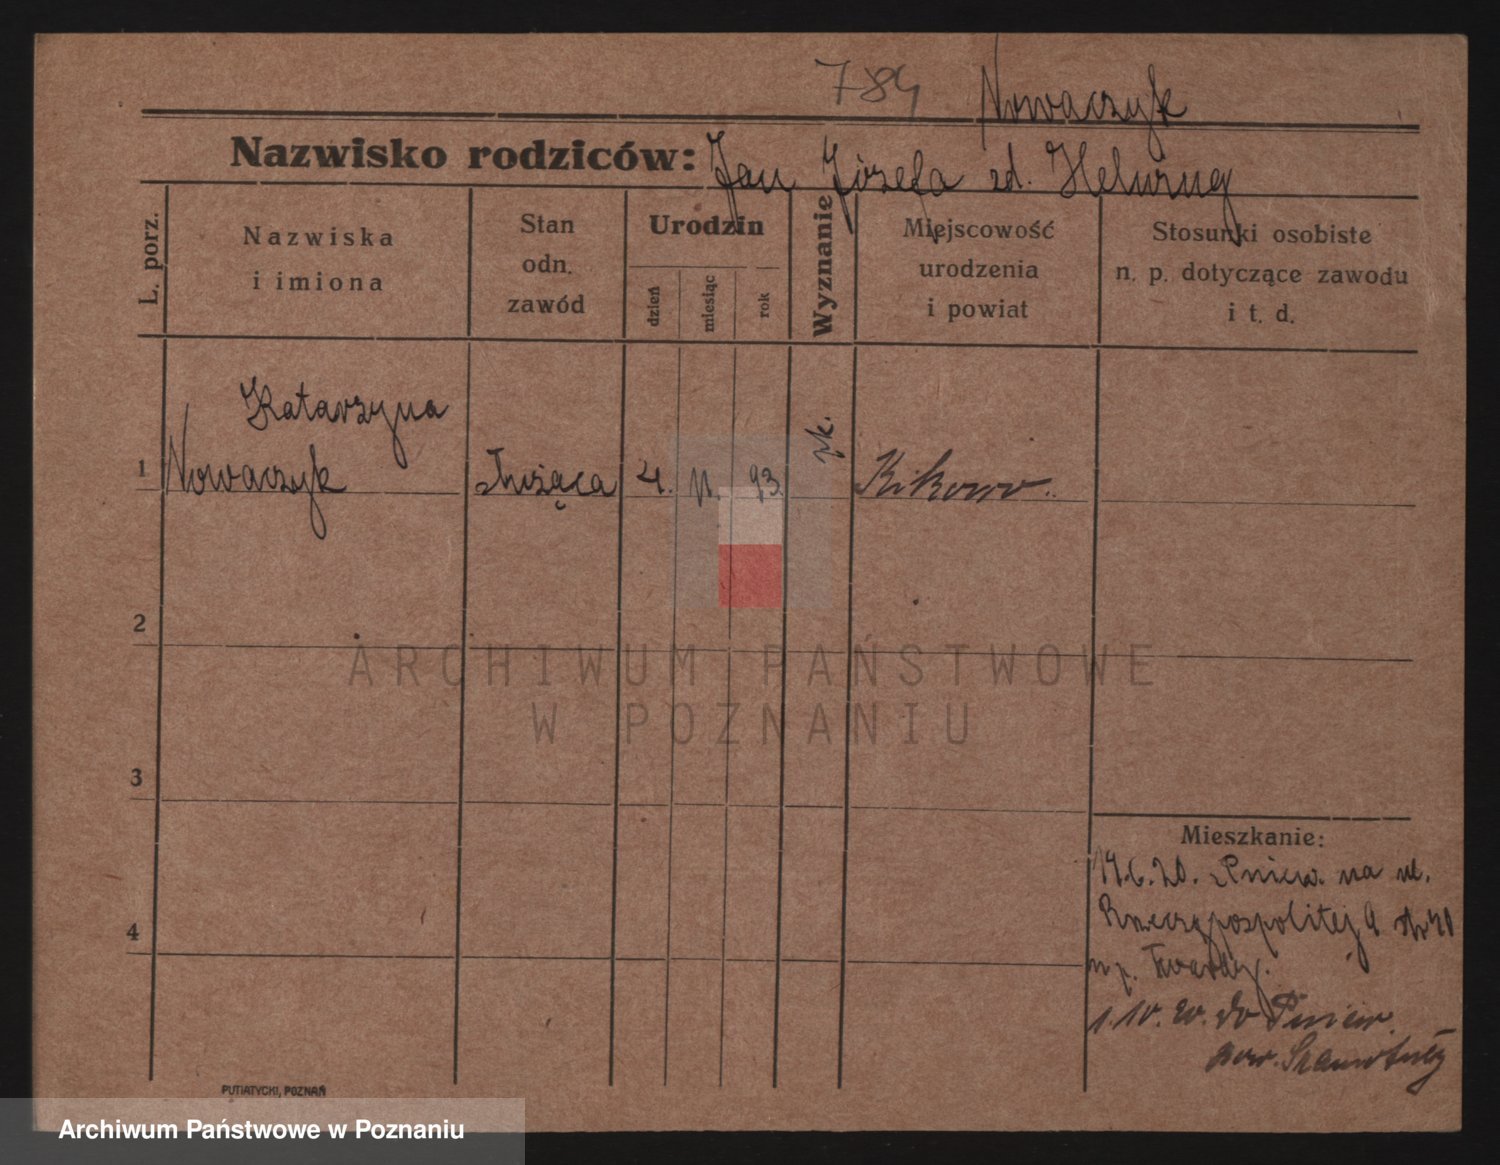 784 Nowaczyk
Nazwisko rodziców: Jan Józefa zd.
L. porz.
Nazwiska
i imiona
Stan
odn.
zawód
Urodzin
dzień
miesiąc
rok
Wyznanie
Miejscowość
urodzenia
i powiat
Stosunki osobiste
n. p. dotyczące zawodu
i t. d.
1
Katarzyna
Nowaczyk
służąca
4. 11. 93.
rk.
Kikowo
2
3
4
ARCHIWUM PAŃSTWOWE
W POZNANIU
Mieszkanie:
14.6.20. z Pniew. na ul.
Rzeczypospolitej 9
u p. Twardy.
1.10.20. do Pniew.
pow. Szamotuły
PUTIATYCKI, POZNAŃ
Archiwum Państwowe w Poznaniu